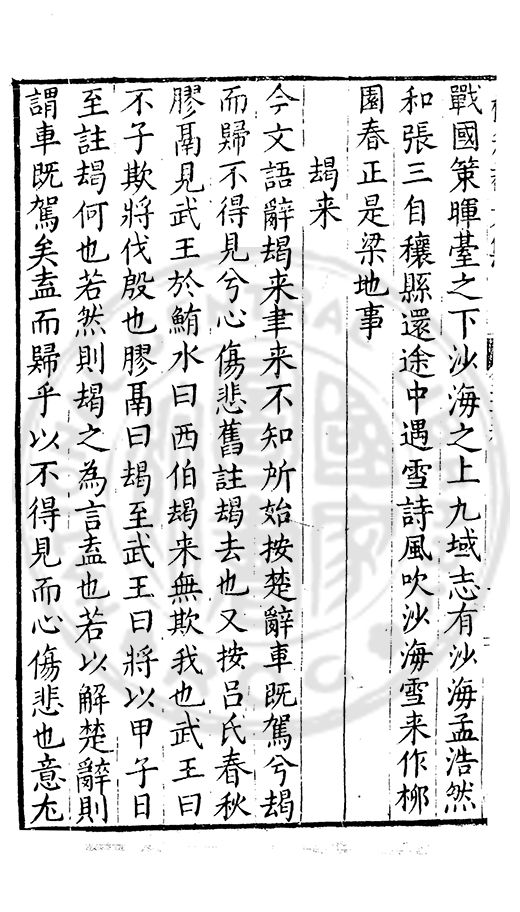 戰國策暉臺之下沙海之上九域志有沙海孟浩然
和張三自穰縣還途中遇雪詩風吹沙海雪来作桺
園春正是梁地事
朅来
今文語辭朅来聿来不知所始按楚辭車既駕兮朅
而歸不得見兮心傷悲舊註朅去也又按吕氏春秋
膠鬲見武王於鮪水曰西伯朅来無欺我也武王曰
不子欺將伐殷也膠鬲曰朅至武王曰將以甲子日
至註朅何也若然則朅之為言盍也若以解楚辭則
謂車既駕矣盍而歸乎以不得見而心傷悲也意尤